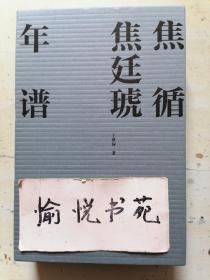 焦循
焦廷琥
年谱
愉悦书苑